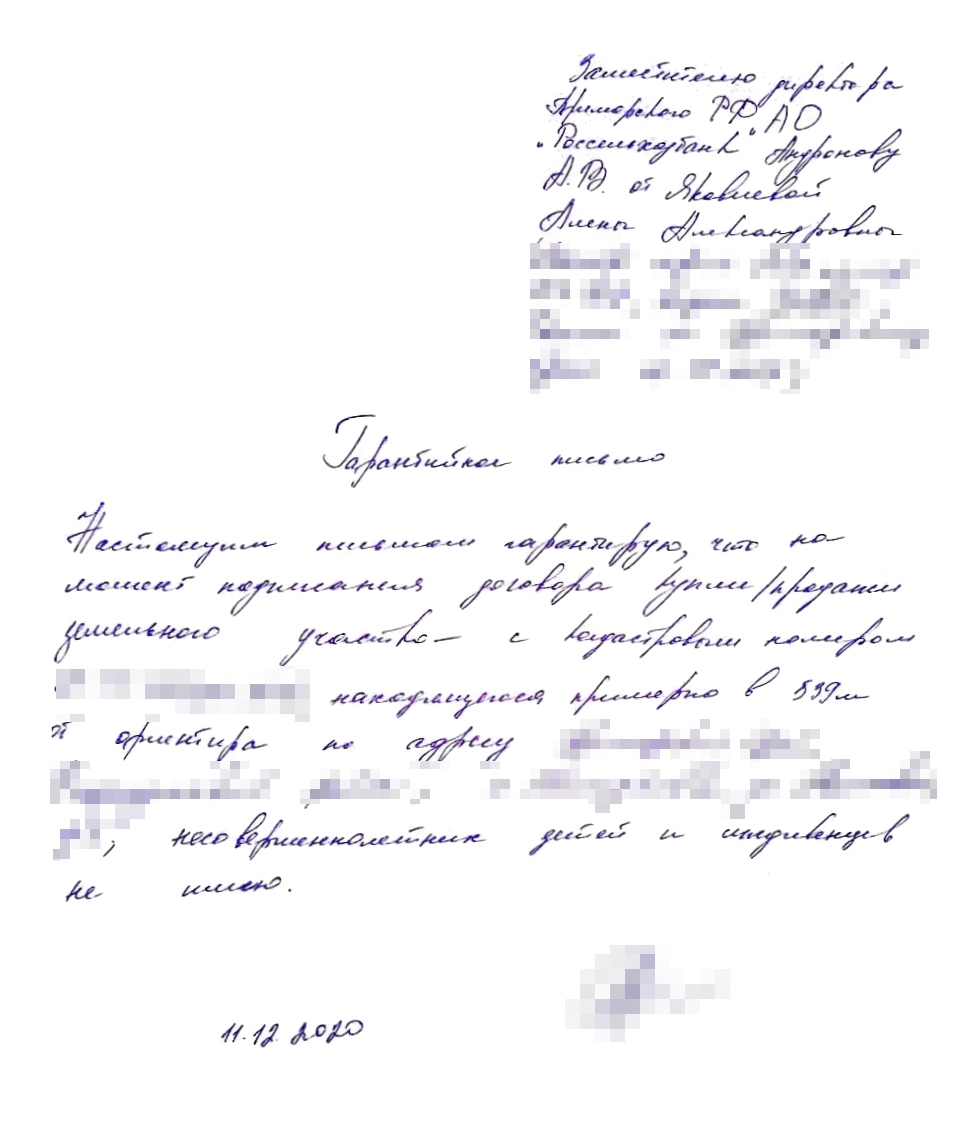 Заместителю директора
Приморского РФ АО
"Россельхозбанк" Андронову
А.В. от Яковлевой
Алены Александровны
Гарантийное письмо
Настоящим письмом гарантирую, что на
момент подписания договора купли/продажи
земельного участка с кадастровым номером
находящегося примерно в 539м
от ориентира по адресу
, несовершеннолетних детей и иждивенцев
не имею.
11.12.2020